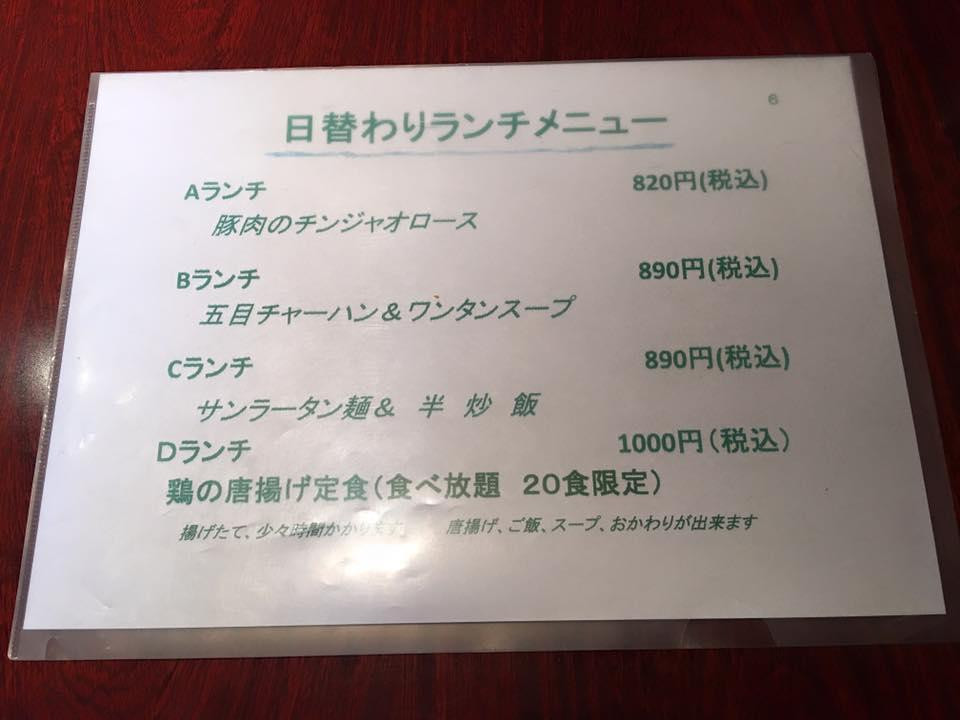 6
日替わりランチメニュー
Aランチ 820円(税込)
豚肉のチンジャオロース
Bランチ 890円(税込)
五目チャーハン＆ワンタンスープ
Cランチ 890円(税込)
サンラータン麺＆ 半 炒 飯
Dランチ 1000円（税込）
鶏の唐揚げ定食（食べ放題 20食限定）
揚げたて、少々時間かかります。 唐揚げ、ご飯、スープ、おかわりが出来ます